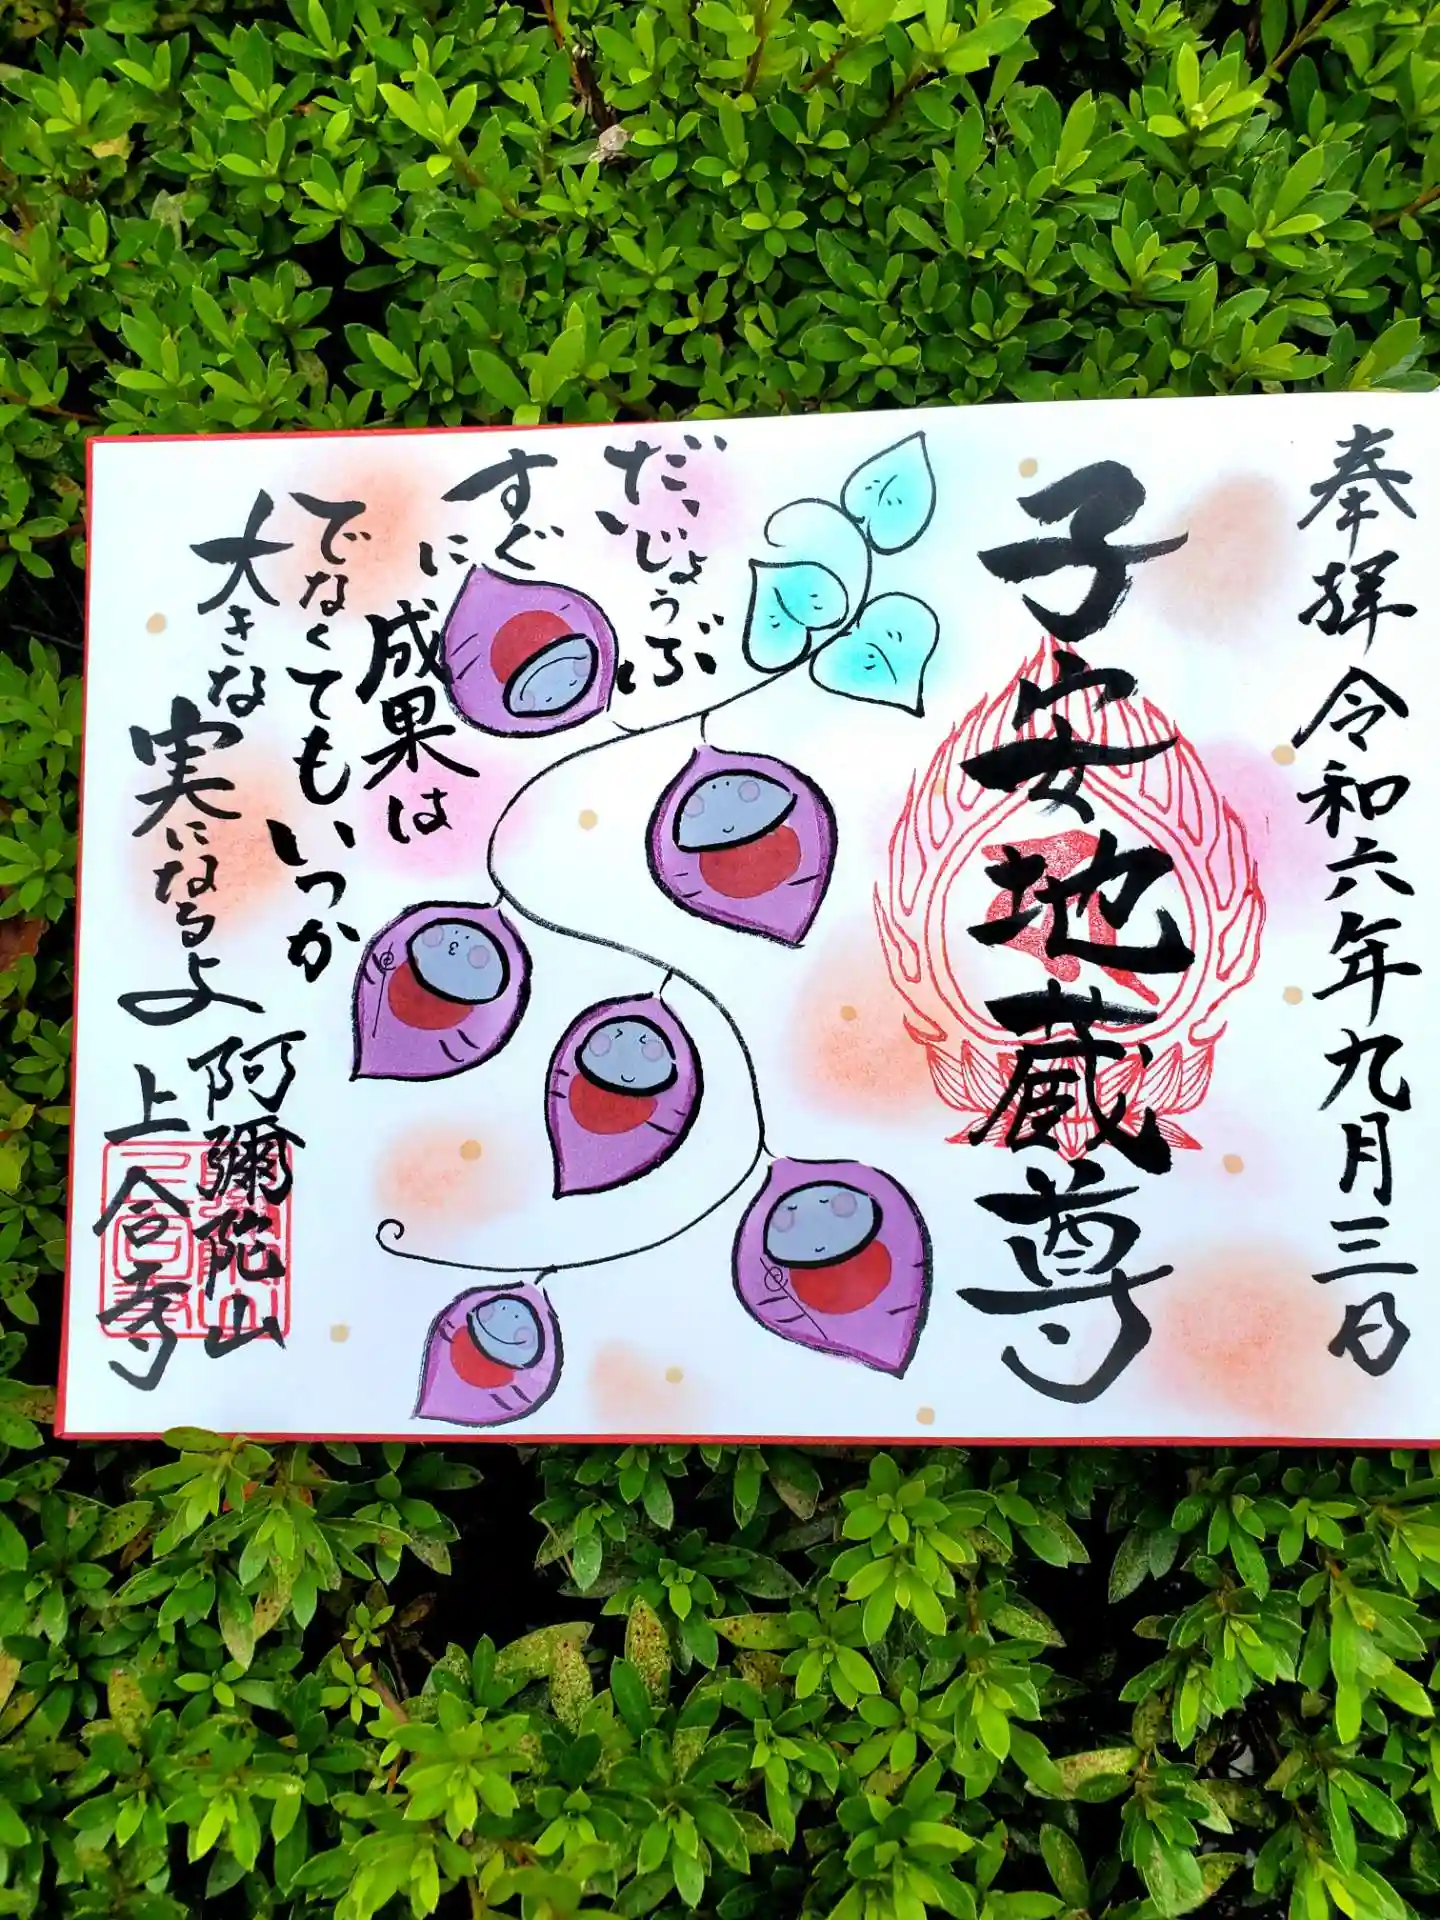 奉拝 令和六年九月三日
子安地蔵尊
だいじょうぶ
すぐに
成果は
でなくてもいつか
大きな
実になるよ
阿彌陀山
上合寺